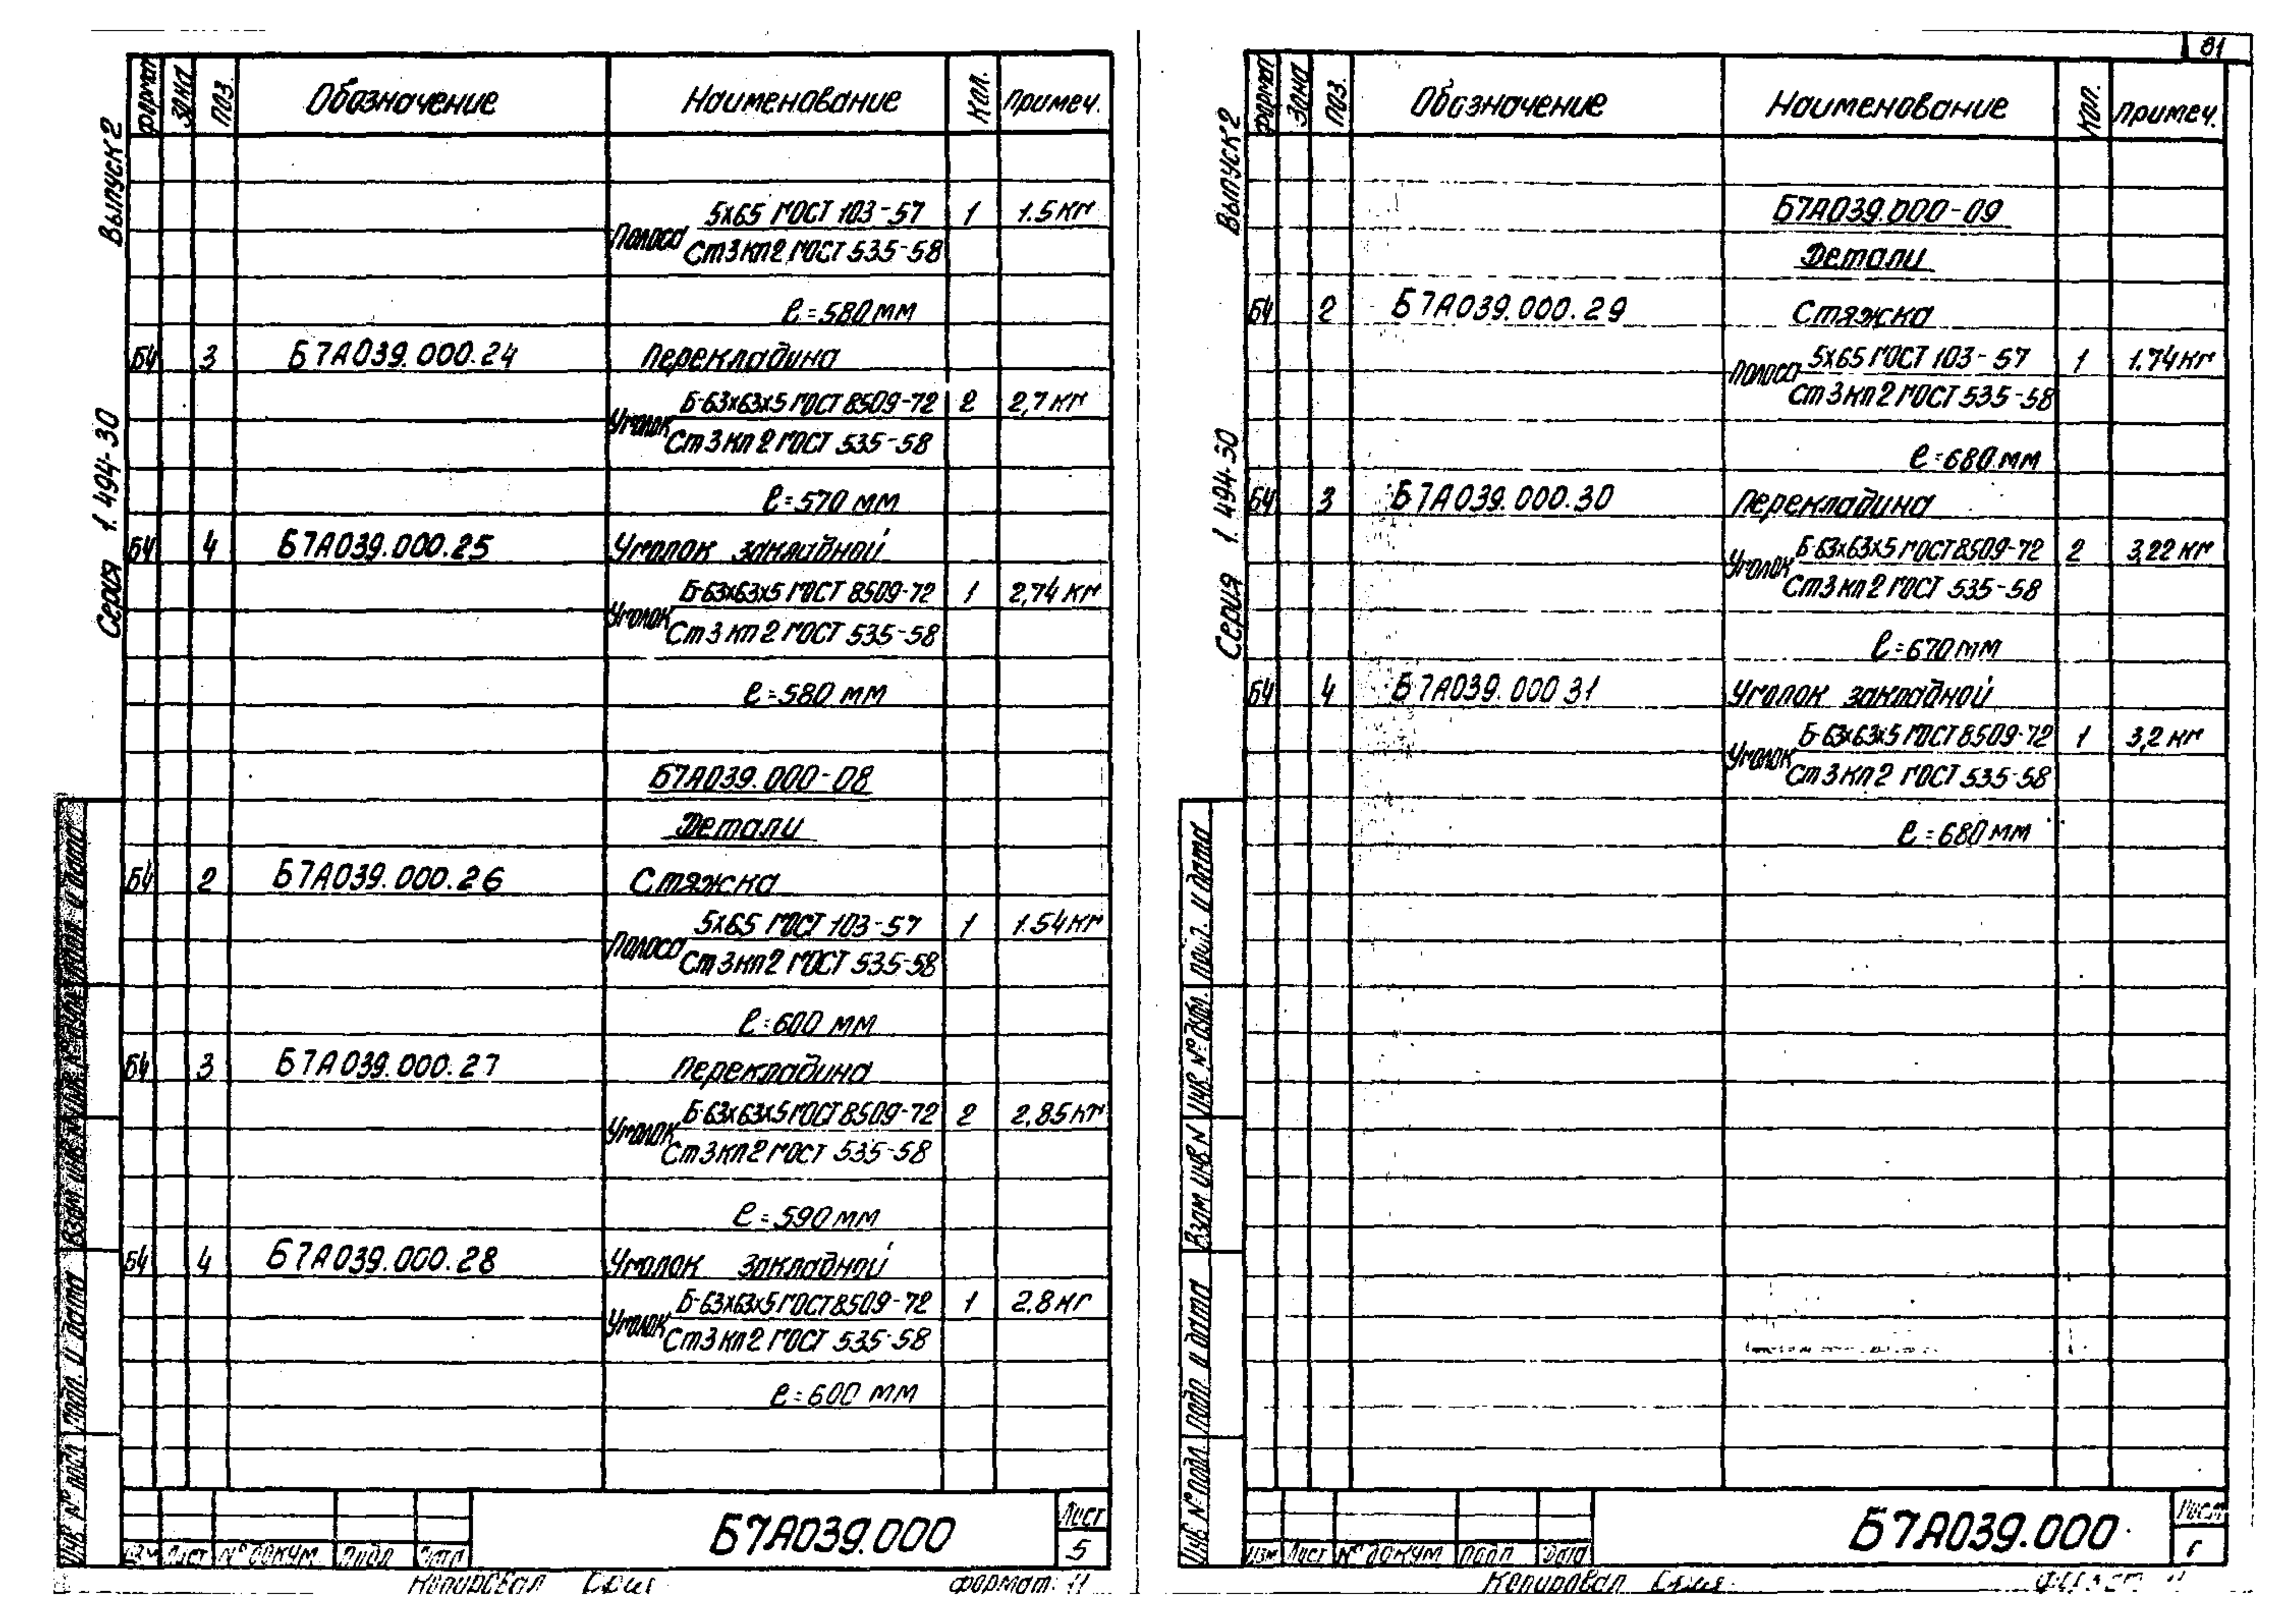 Серия 1.494-30 Выпуск 2
Формат Зона Поз. Обозначение Наименование Кол. Примеч.
Полоса 5х65 ГОСТ 103-57 1 1.5 кг
Ст3кп2 ГОСТ 535-58
ℓ=580мм
Б4 3 Б7А039.000.24 Перекладина
Уголок Б-63х63х5 ГОСТ 8509-72 2 2,7 кг
Ст3кп2 ГОСТ 535-58
ℓ=570 мм
Б4 4 Б7А039.000.25 Уголок закладной
Уголок Б-63х63х5 ГОСТ 8509-72 1 2,74 кг
Ст3кп2 ГОСТ 535-58
ℓ=580 мм
Б7А039.000-08
Детали
Б4 2 Б7А039.000.26 Стяжка
Полоса 5х65 ГОСТ 103-57 1 1.54кг
Ст3кп2 ГОСТ 535-58
ℓ=600 мм
Б4 3 Б7А039.000.27 Перекладина
Уголок Б-63х63х5 ГОСТ 8509-72 2 2,85кг
Ст3кп2 ГОСТ 535-58
ℓ=590мм
Б4 4 Б7А039.000.28 Уголок закладной
Уголок Б-63х63х5 ГОСТ 8509-72 1 2.8кг
Ст3кп2 ГОСТ 535-58
ℓ=600 мм
Инв № подл Подп. и дата Взам инв №
Изм Лист № докум. Подп Дата
Б7А039.000
Лист
5
Копировал
Формат: 11
81
Серия 1.494-30 Выпуск 2
Формат Зона Поз. Обозначение Наименование Кол. Примеч.
Б7А039.000-09
Детали
Б4 2 Б7А039.000.29 Стяжка
Полоса 5х65 ГОСТ 103-57 1 1.74кг
Ст3кп2 ГОСТ 535-58
ℓ=680мм
Б4 3 Б7А039.000.30 Перекладина
Уголок Б-63х63х5 ГОСТ 8509-72 2 3,22 кг
Ст3кп2 ГОСТ 535-58
ℓ=670мм
Б4 4 Б7А039.000 31 Уголок закладной
Уголок Б-63х63х5 ГОСТ 8509-72 1 3,2 кг
Ст3кп2 ГОСТ 535-58
ℓ=680мм
Инв № подл Подп. и дата Взам инв № Инв № дубл. Подп. и дата
Изм Лист № докум. Подп Дата
Б7А039.000
Лист
Копировал